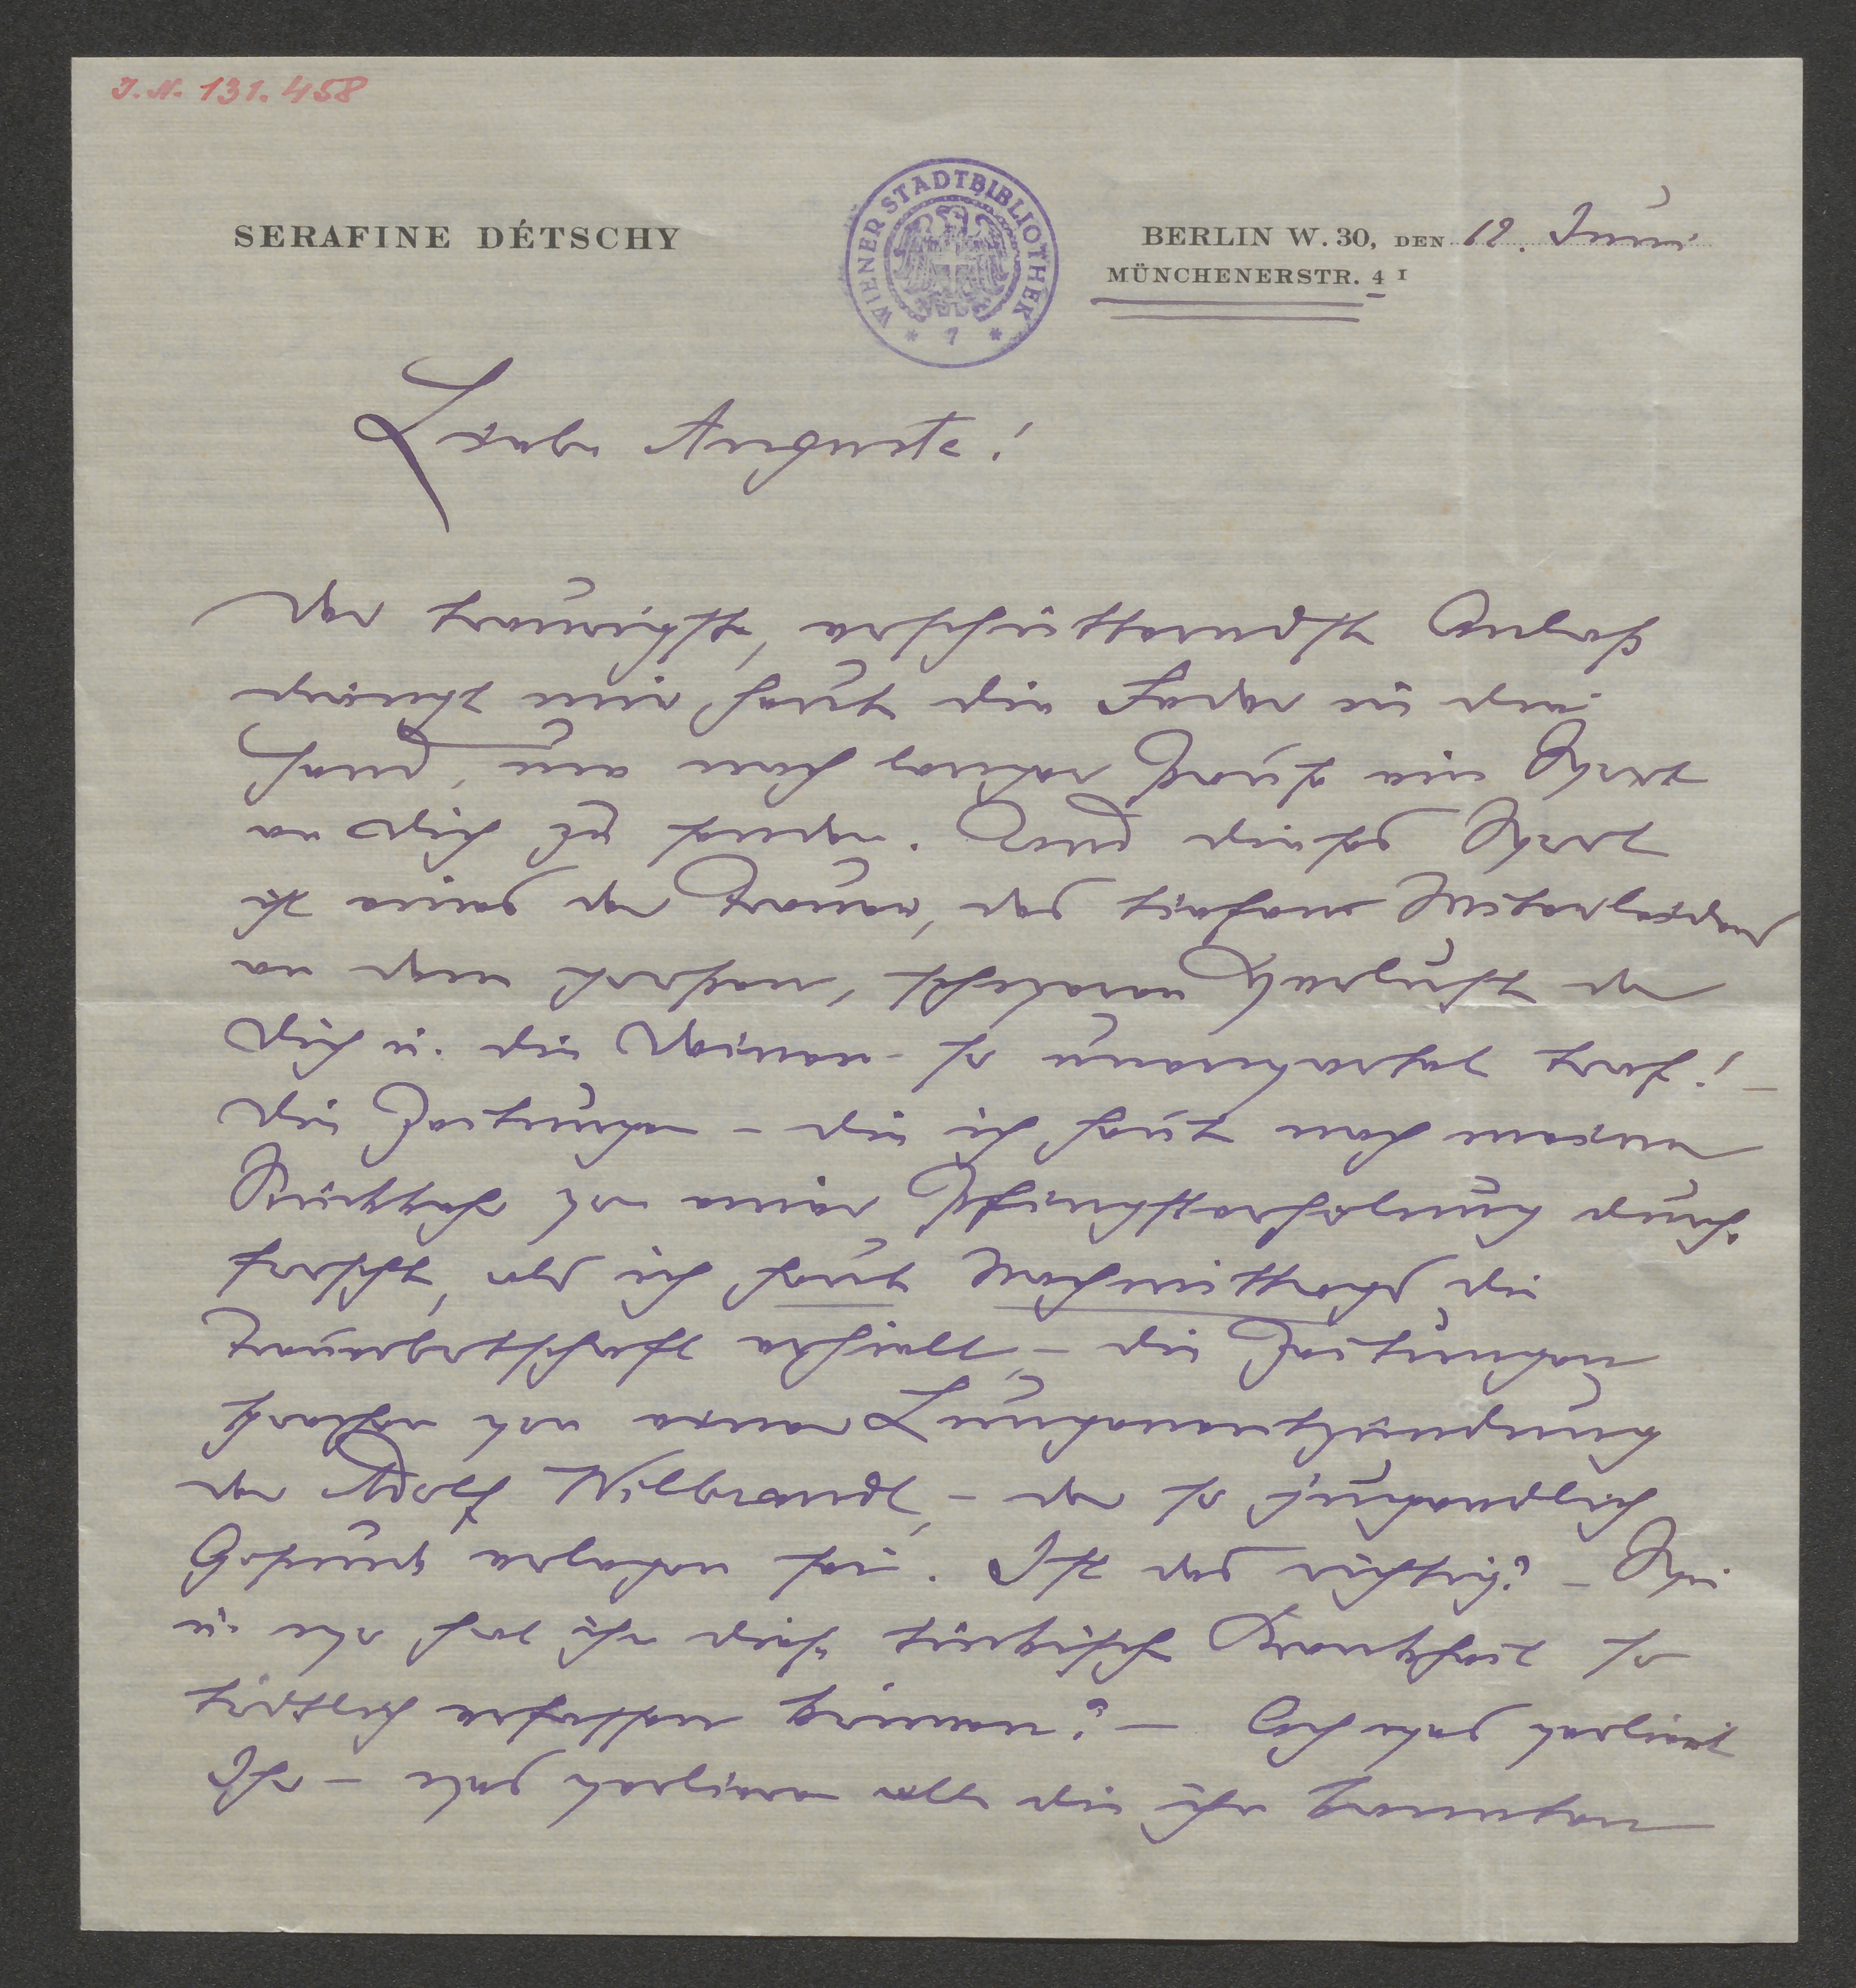 J. N. 131.458
WIENER STADTBIBLIOTHEK
* 7 *
SERAFINE DÉTSCHY
BERLIN W. 30, DEN 12. Juni
MÜNCHENERSTR. 4 I
Liebe Auguste!
Der traurigste, erschütterndste Anlaß
drängt mir heut die Feder in die
Hand, um nach langer Zeit ein Wort
an Dich zu senden. Und dieses Wort
ist eines der Trauer, des tiefsten Miterleidens
an dem herben, schwersten Verluste der
Dich u. die Deinen so unerwartet traf! –
Die Zeitungen – die ich heut nach meiner
Rückkehr von einer Pfingsterholung durch-
forschte, als ich heut Nachmittags die
Trauerbotschaft erhielt, – die Zeitungen
sprechen von einer Lungenentzündung
der Adolf Wilbrandt, – der so jugendlich
Gesunde erlegen sei. Ist das richtig? – Wie
u. wo hat ihn diese tückische Krankheit so
tödtlich erfassen können? – Ach was verliert
Ihr – was verlieren alle die ihn kannten